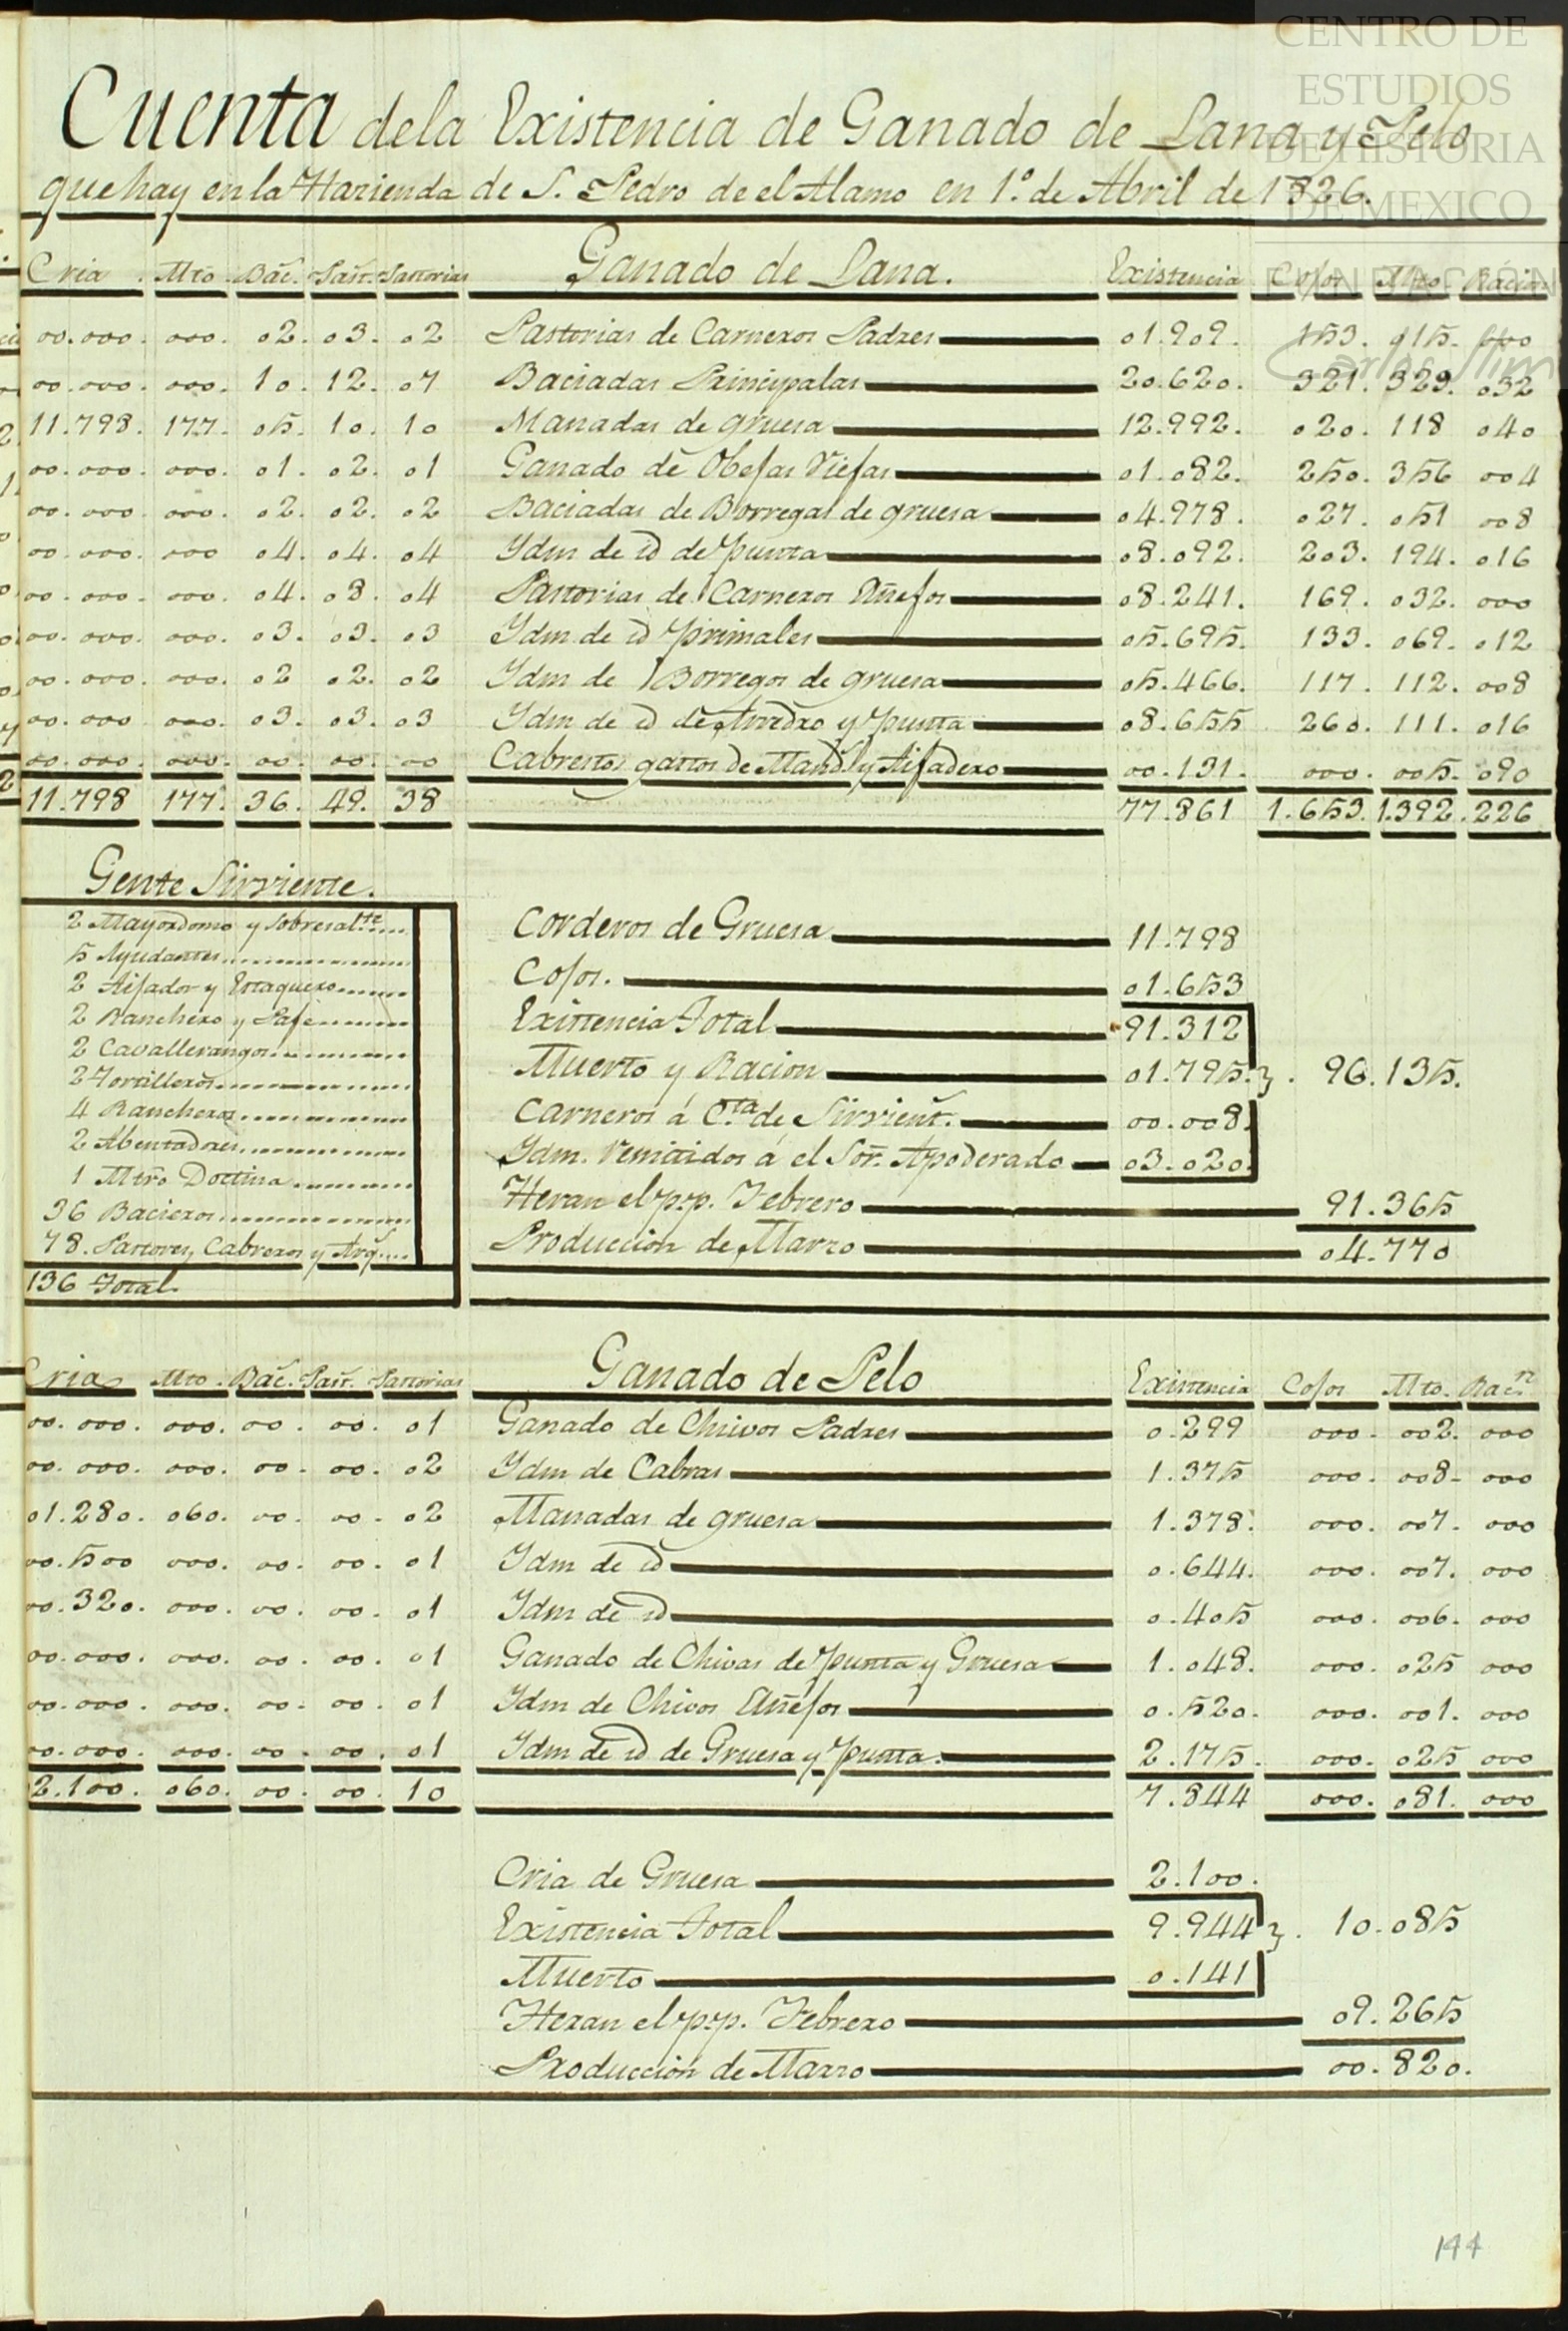 CENTRO DE
ESTUDIOS
DE HISTORIA
DE MEXICO
FUNDACIÓN
Carlos Slim
Cuenta dela Existencia de Ganado de Lana y Pelo
que hay en la Hazienda de S. Pedro de el Alamo en 1.º de Abril de 1826.
Cria. Mto. Bac. Past. Pastorias Ganado de Lana. Existencia Cojos Mto. Racion
00.000. 000. 02. 03. 02 Pastorias de Carneros Padres 01.909. 153. 015. 000
00.000. 000. 10. 12. 07 Baciadas Principalas 20.620. 321. 329. 032
11.798. 177. 05. 10. 10 Manadas de gruesa 12.992. 020. 118 040
00.000. 000. 01. 02. 01 Ganado de Obejas Viejas 01.082. 250. 356 004
00.000. 000. 02. 02. 02 Baciadas de Borregas de gruesa 04.978. 027. 051 008
00.000. 000 04. 04. 04 Ydm de id de punta 08.092. 203. 194. 016
00.000. 000. 04. 08. 04 Pastorias de Carneros Añejos 08.241. 169. 032. 000
00.000. 000. 03. 03. 03 Ydm de id primales 05.695. 133. 069. 012
00.000. 000. 02 02. 02 Ydm de Borregos de gruesa 05.466. 117. 112. 008
00.000 000. 03. 03. 03 Ydm de id de Amedro y punta 08.655 260. 111. 016
00.000. 000. 00. 00. 00 Cabrestos gastos de Mand.s y Aijadero 00.131. 000. 005. 090
11.798 177. 36. 49. 38 77.861 1.653. 1.392. 226
Gente Sirviente.
2 Mayordomo y Sobresal.te
5 Ayudantes
2 Aijador y Estaquero
2 Ranchero y Paje
2 Cavallerangos
2 Tortilleros
4 Rancheros
2 Abentadores
1 Mtro Doctina
36 Bacieros
78. Pastores, Cabreros y Arg.s
136 Total.
Corderos de Gruesa 11.798
Cojos. 01.653
Existencia Total 91.312
Muerto y Racion 01.795. 96.135.
Carneros á C.ta de Sirvient. 00.008.
Ydm. Remitidos á el Sor. Apoderado 03.020.
Heran el p.p. Febrero 91.365
Produccion de Marzo 04.770
Cria Mto. Bac. Past. Pastorias Ganado de Pelo Existencia Cojos Mto. Rac.n
00.000. 000. 00. 00. 01 Ganado de Chivos Padres 0.299 000. 002. 000
00.000. 000. 00. 00. 02 Ydm de Cabras 1.375 000. 008. 000
01.280. 060. 00. 00. 02 Manadas de gruesa 1.378. 000. 007. 000
00.500 000. 00. 00. 01 Ydm de id 0.644. 000. 007. 000
00.320. 000. 00. 00. 01 Ydm de id 0.405 000. 006. 000
00.000. 000. 00. 00. 01 Ganado de Chivas de punta y Gruesa 1.048. 000. 025 000
00.000. 000. 00. 00. 01 Ydm de Chivos Añejos 0.520. 000. 001. 000
00.000. 000. 00. 00. 01 Ydm de id de Gruesa y punta. 2.175. 000. 025 000
2.100. 060. 00. 00. 10 7.844 000. 081. 000
Cria de Gruesa 2.100.
Existencia Total 9.944 10.085
Muerto 0.141
Heran el p.p. Febrero 09.265
Produccion de Marzo 00.820.
144